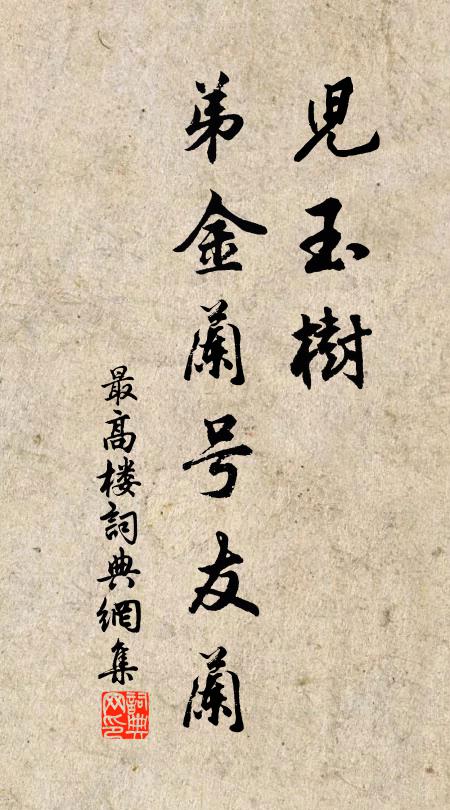 児玉樹
弟金蘭号友蘭
最高楼詞典網集
詞典網印